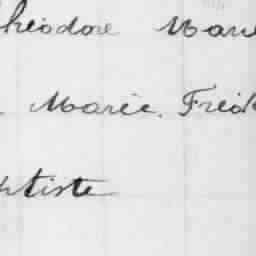 Théodore Marie
Marie. Fréd
ptiste